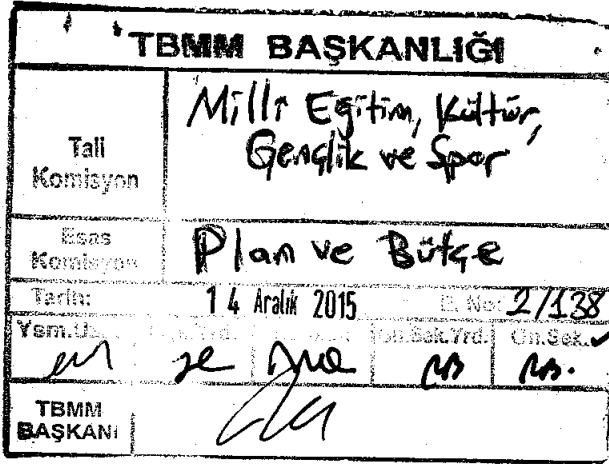 TBMM BAŞKANLIĞI
Tali Komisyon
Milli Eğitim, Kültür,
Gençlik ve Spor
Esas Komisyon
Plan ve Bütçe
Tarih: 14 Aralık 2015 E. No: 2/138
Ysm.U Yrd. Gn.Sek.Yrd. Gn.Sek.
TBMM
BAŞKANI